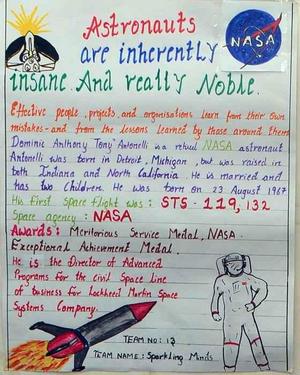 Astronauts
are inherently
NASA
insane. And really Noble.
Effective people, projects, and organisations learn from their own
mistakes - and from the lessons learned by those around them
Dominic Anthony "Tony" Antonelli is a retired NASA astronaut
Antonelli was born in Detroit, Michigan, but was raised in
both Indiana and North California. He is married and
has two Children. He was born on 23 August 1967
His first Space flight was: STS - 119, 132
Space agency: NASA
Awards: Meritorious Service Medal, NASA
Exceptional Achievement Medal.
He is the Director of Advanced
Programs for the civil Space line
of business for Lockheed Martin Space
Systems Company.
TEAM NO: 13
TEAM NAME: Sparkling Minds